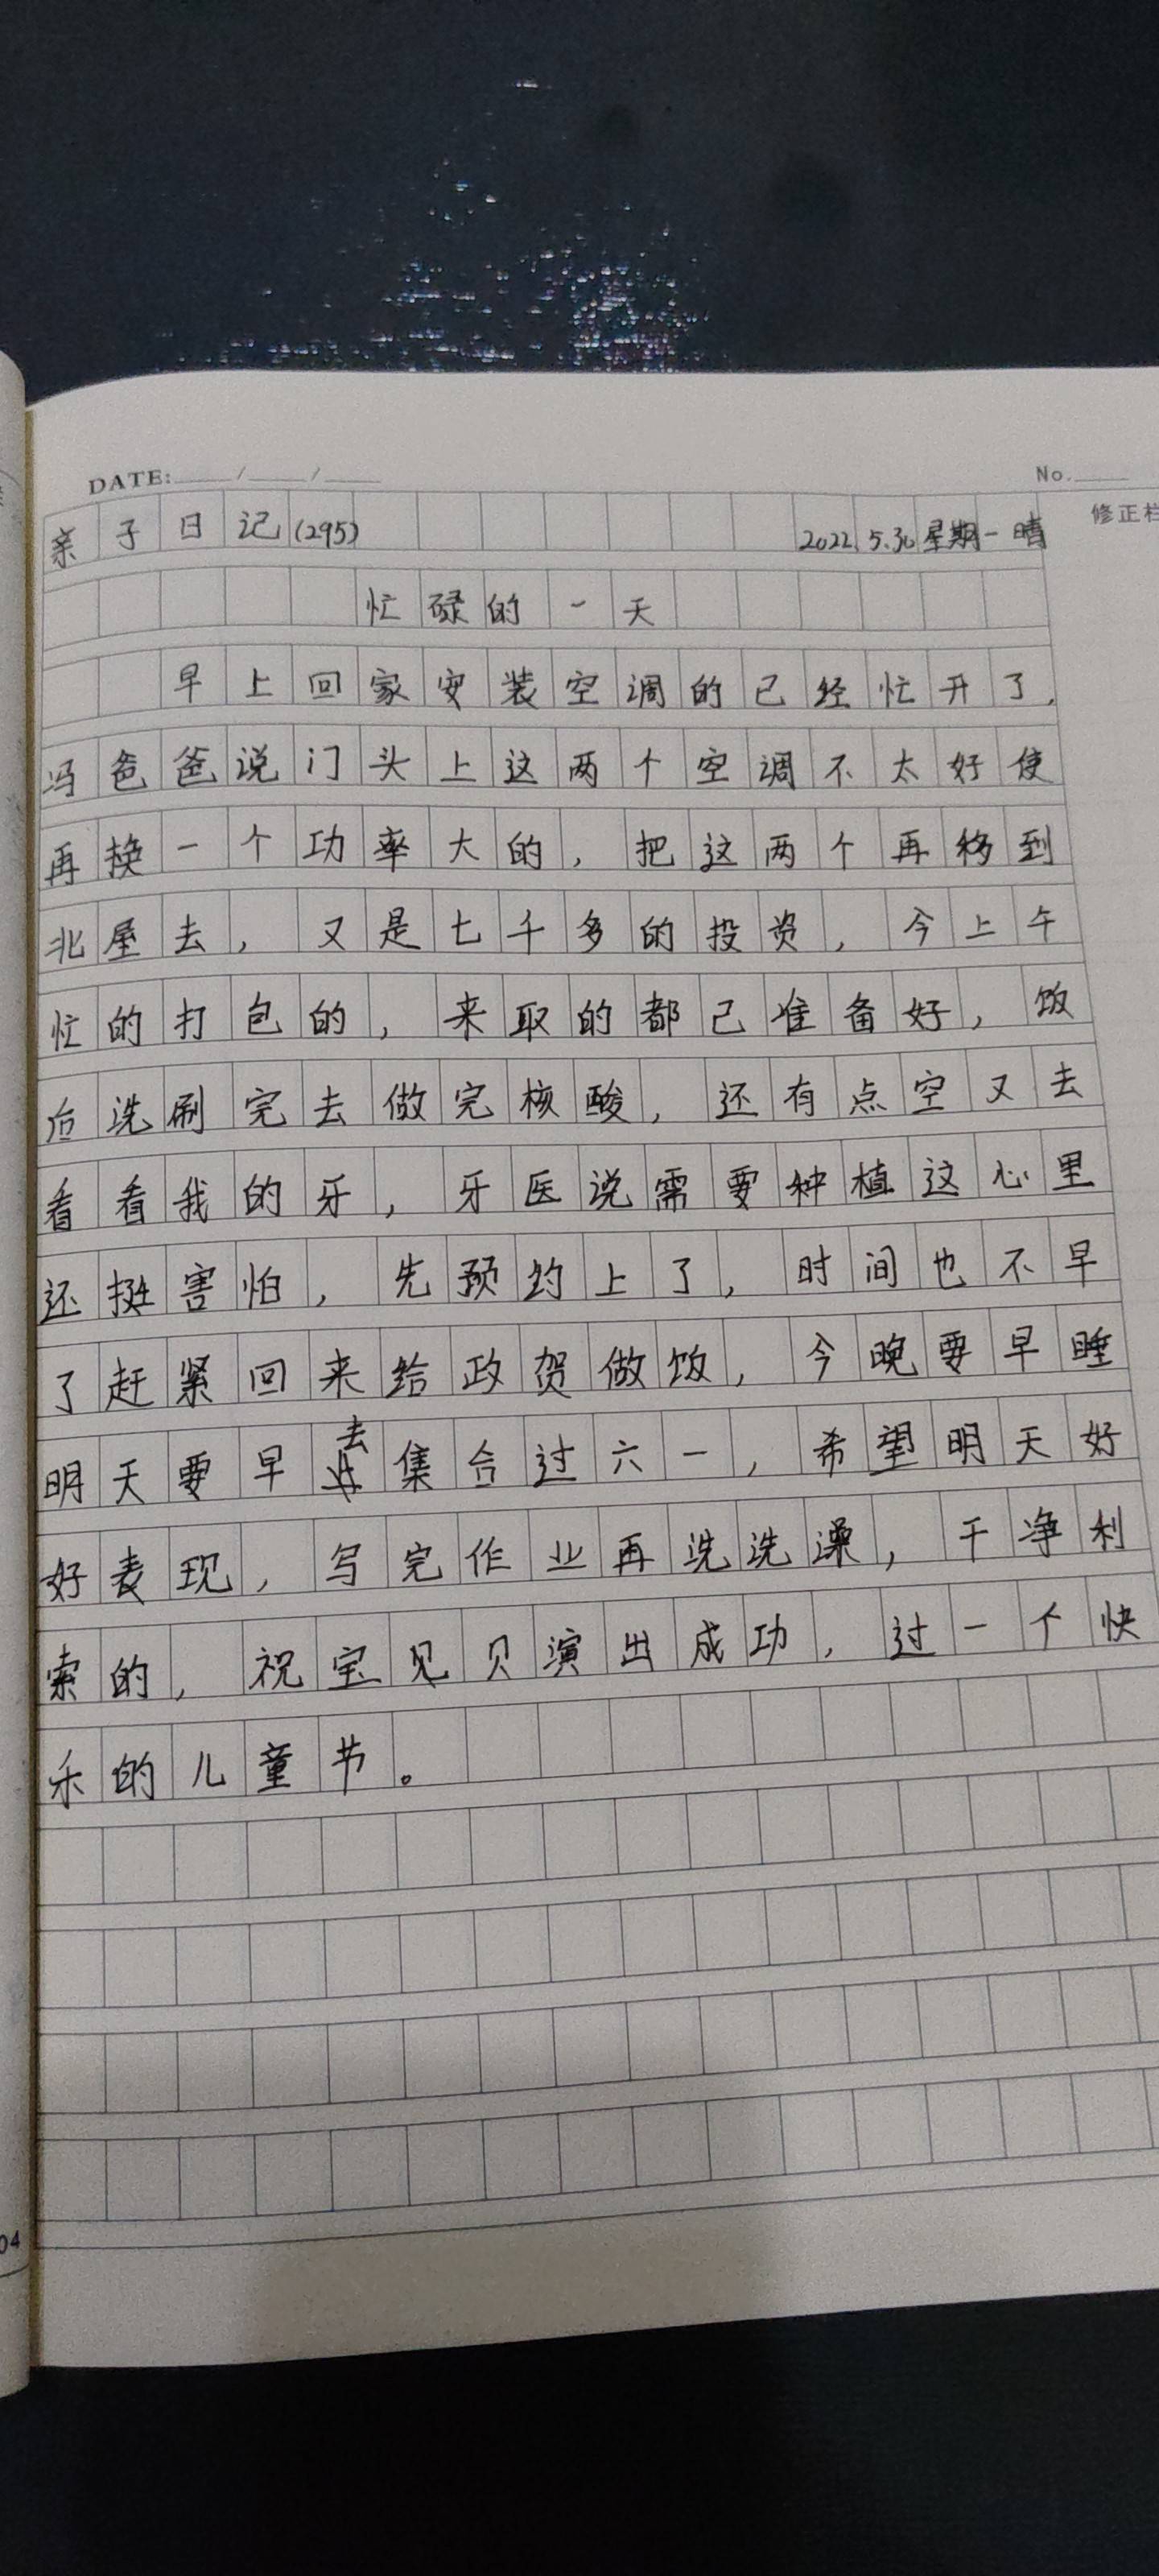 DATE: / / No.
修正栏
亲子日记(295) 2022.5.30 星期一 晴
忙碌的一天
早上回家安装空调的已经忙开了,
冯爸爸说门头上这两个空调不太好使
再换一个功率大的,把这两个再移到
北屋去,又是七千多的投资,今上午
忙的打包的,来取的都已准备好,饭
后洗刷完去做完核酸,还有点空又去
看看我的牙,牙医说需要种植这心里
还挺害怕,先预约上了,时间也不早
了赶紧回来给政贺做饭,今晚要早睡
明天要早去集合过六一,希望明天好
好表现,写完作业再洗洗澡,干净利
索的,祝宝见贝演出成功,过一个快
乐的儿童节。
04